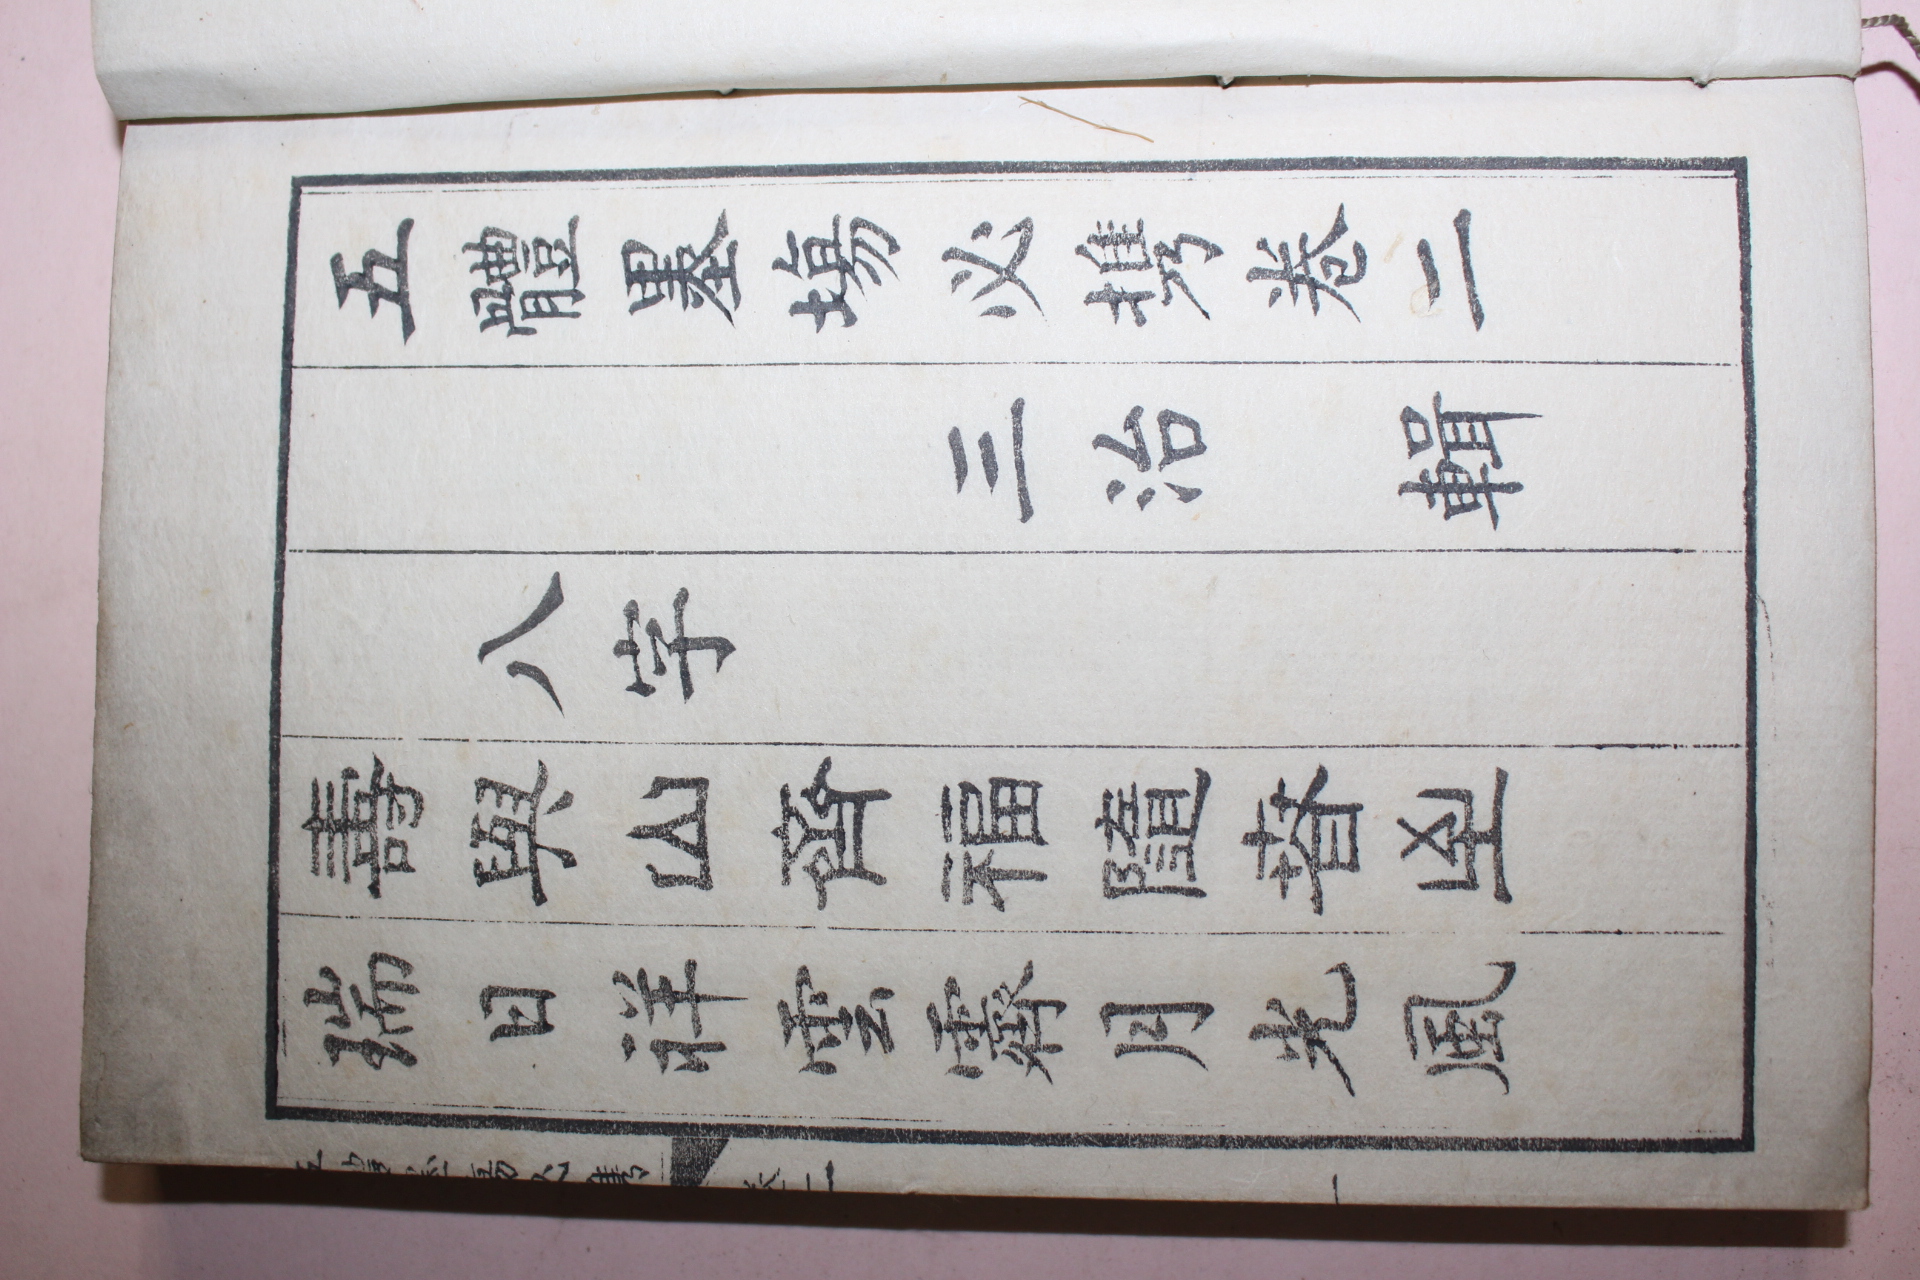 五體墨塲必携卷二
三治輯
八字
壽與山齊福隨春至
瑞日祥雲霽月光風
五體墨塲必携
卷二
一